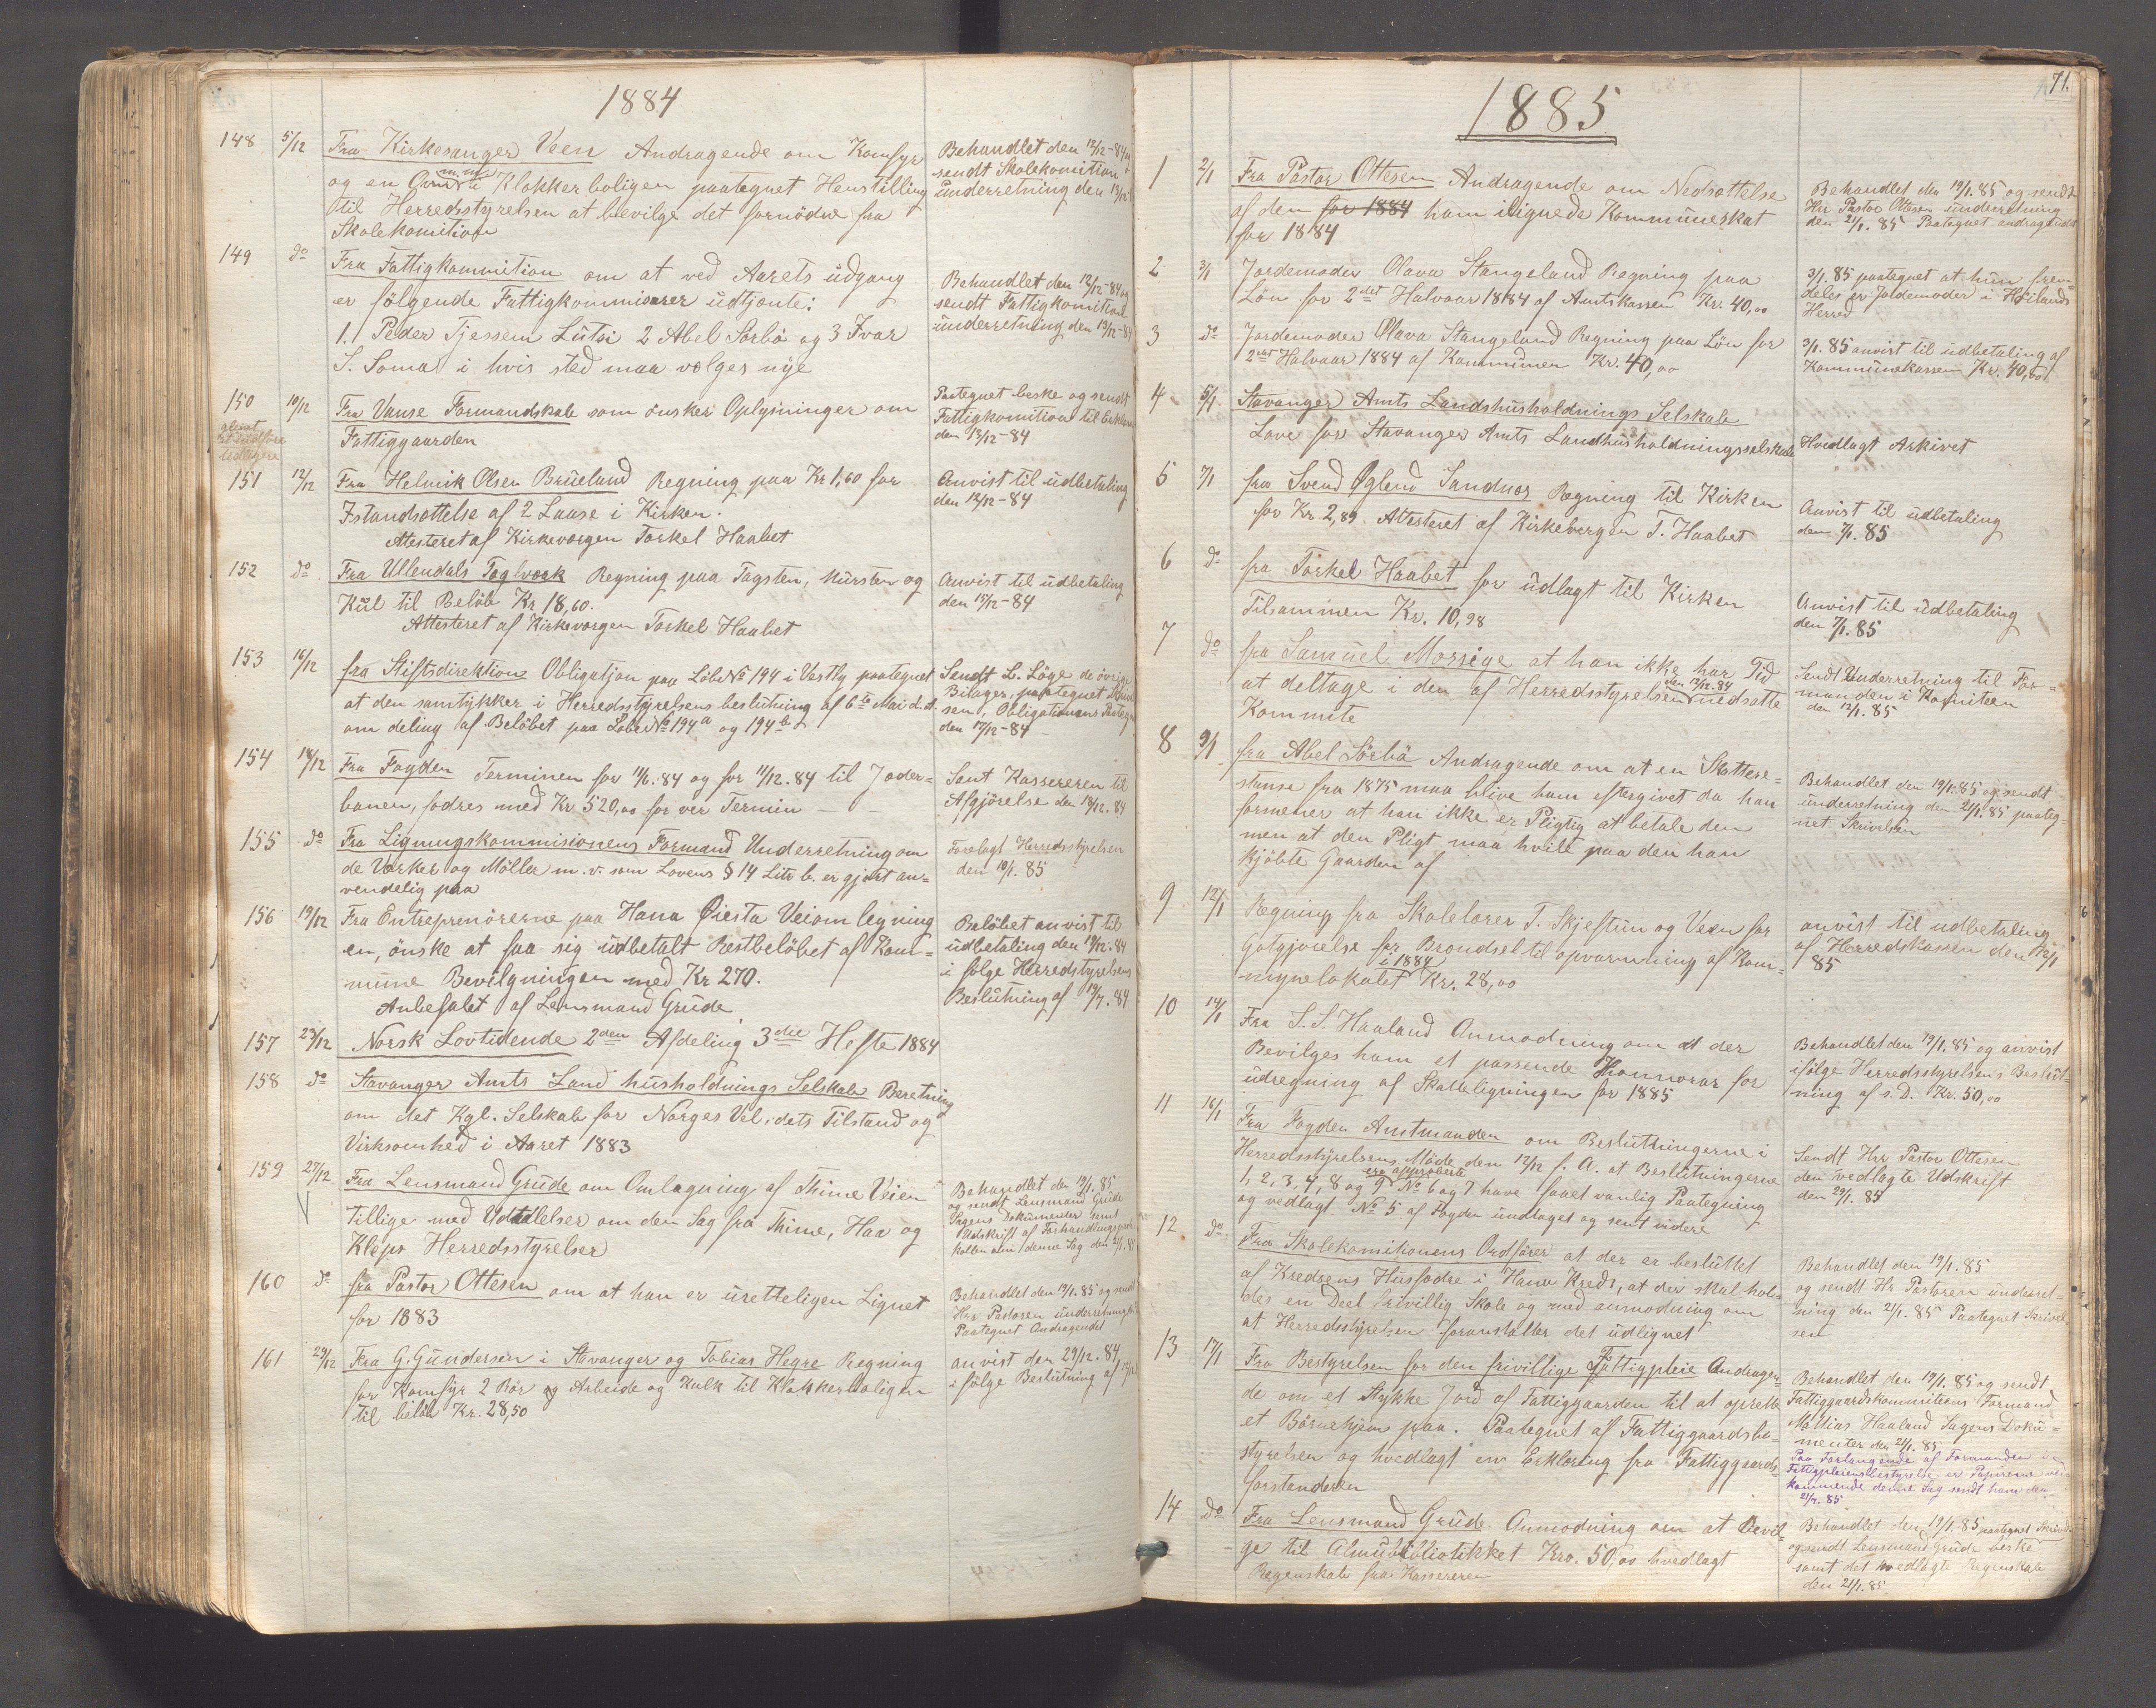 1884
148 5/12 Fra Kirkesanger Veen Andragende om Komfyr
og en Ovn m.m. i Klokkerboligen paategnet Henstilling
til Herredsstyrelsen at bevilge det fornödne fra
Skolekomition
Behandlet den 12/12-84 og
sendt Skolekomition
underretning den 13/12
149 do Fra Fattigkommition om at ved Aarets udgang
er fölgende Fattigkommisærer udtjente:
1. Peder Tjessem Lutsi 2 Abel Sørbö og 3 Ivar
S. Soma i hvis sted maa vælges nye
Behandlet den 12/12-84 og
sendt Fattigkomition
underretning den 13/12-84
150 10/12 Fra Vanse Formandskab som önsker Oplysninger om
Fattiggaarden
Paategnet beske og sendt
Fattigkomition til Erklæring
den 13/12-84
glemt
at indföre
tidligere
151 12/12 Fra Helmik Olsen Brueland Regning paa Kr 1,60 for
Istandsættelse af 2 Laase i Kirken.
Atesteret af Kirkeværgen Torkel Haabet
Anvist til udbetaling
den 12/12-84
152 do Fra Ullendals Teglværk Regning paa Tagsten, Mursten og
Kul til Belöb Kr 18,60.
Attesteret af Kirkeværgen Torkel Haabet
Anvist til udbetaling
den 13/12-84
153 16/12 fra Stiftsdirektion Obligatjon paa Löb No 194 i Vastly paategnet
at den samtykker i Herredsstyrelsens beslutning af 6te Mai d.A.
om deling af Belöbet paa Löbe No 194a og 194b
Sendt L. Löge de övrige
Bilager, paategnet
sen, Obligationens
den 17/12-84
154 18/12 Fra Fogden Terminen for 11/6.84 og for 11/12.84 til Jæder=
banen, fodres med Kr 520,00 for ver Termin
Sent Kassereren til
Afgjörelse den 18/12.84
155 do Fra Ligningskommisionens Formand Underretning om
de Værker og Möller m.v. som Lovens § 14 Litr b. er gjort an=
vendelig paa
Forelagt Herredsstyrelsen
den 19/1.85
156 19/12 Fra Entreprenörerne paa Hana Öiesta Veiomlegning
en, önske at faa sig udbetalt Restbelöbet af Kom=
mune Bevilgningen med Kr 270.
Anbefalet af Lensmand Grude
Belöbet anvist til
udbetaling den 19/12.84
i fölge Herredstyrelsens
Beslutning af 19/7.84
157 23/12 Norsk Lovtidende 2den Afdeling 3die Hefte 1884
158 do Stavanger Amts Land husholdnings Selskab Beretning
om det Kgl. Selskab for Norges Vel, dets Tilstand og
Virksomhed i Aaret 1883
159 27/12 Fra Lensmand Grude om Omlægning af Thime Veien
Tillige med Udtalelser om den Sag fra Thime, Haa og
Kleps Herredsstyrelser
Behandlet den 19/1.85
og sendt Lensmand Grude
Sagens Dokumenter samt
Udskrift af Forhandlingspro
kollen om denne Sag den 21/1.85
160 do fra Pastor Ottesen om at han er uretteligen Lignet
for 1883
Behandlet den 19/1.85 og sendt
Hrr Pastoren underretning
Paategnet Andragendet
161 29/12 Fra G. Gundersen i Stavanger og Tobias Hegre Regning
for Komfyr 2 Rör og Arbeide og Kalk til Klokkerboligen
til belöb Kr. 28,50
anvist den 29/12.84
i fölge Beslutning af
1885
71.
1 2/1 Fra Pastor Ottesen Andragende om Nedsættelse
af den for 1884 ham ilignede Kommuneskat
for 1884
Behandlet den 19/1.85 og sendt
Hrr Pastor Ottesen underretning
den 21/1.85 Paategnet andragendet
2 3/1 Jordemoder Olava Stangeland Regning paa
Lön for 2det Halvaar 1884 af Amtskassen Kr. 40,00
3/1.85 paategnet at hun frem
deles er Jordemoder i Höilands
Herred
3 do Jordemoder Olava Stangeland Regning paa Lön for
2det Halvaar 1884 af Kommunen Kr. 40,00
3/1.85 anvist til udbetaling af
Kommunekassen Kr. 40,00
4 5/1 Stavanger Amts Landhusholdnings Selskab
Love for Stavanger Amts Landhusholdningsselskab
Hvedlagt Arkivet
5 7/1 fra Svend Ogland Sandnæs Regning til Kirken
for Kr 2,89. Attesteret af Kirkevergen T. Haabet
Anvist til udbetaling
den 7/1.85
6 do fra Torkel Haabet for udlagt til Kirken
Tilsammen Kr. 10,98
Anvist til udbetaling
den 7/1.85
7 do fra Samuel Morsige at han ikke har Tid
at deltage i den af Herredsstyrelsen den 12/12.84 nedsatte
Kommite
Sendt Underretning til For=
manden i Komiteen
den 12/1.85
8 9/1 fra Abel Sörbö Andragende om at en Skattere=
stanse fra 1875 maa blive ham eftergivet da han
formener at han ikke er Pligtig at betale den
men at den Pligt maa hvile paa den han
kjöbte Gaarden af
Behandlet den 19/1.85 og sendt
underretning den 21/1.85 paateg
net Skrivelsen
9 12/1 Regning fra Skolelærer T. Skjeftun og Veen for
Gotgjörelse for Brændsel til opvarmning af Kom=
i 1884
munelokalet Kr. 28,00
anvist til udbetaling
af Herredskassen den 12/1
85
10 14/1 Fra S. S. Haaland Anmodning om at der
Bevilges ham et passende Honnorar for
udregning af Skatteligningen for 1885
Behandlet den 19/1.85 og anvist
ifölge Herredsstyrelsens Beslut=
ning af s.D. Kr. 50,00
11 16/1 Fra Fogden Amtmanden om Beslutningerne i
Herredsstyrelsens Möde den 12/12 f.A. at Beslutningerne
1, 2, 3, 4, 8 og 9 ere approberte No 6 og 7 have faaet vanlig Paategning
og vedlagt No 5 af Fogden undtaget og sent videre
Sendt Hrr Pastor Ottesen
den vedlagte Udskrift
den 29/1.85
12 do Fra Skolekomitionens Ordförer at der er besluttet
af Kredsens Husfædre i Hana Kreds, at der skal hol=
des en Deel frivillig Skole og med anmodning om
at Herredsstyrelsen foranstalter det udlignet
Behandlet den 19/1.85
og sendt Hr Pastoren underret=
ning den 21/1.85 Paategnet Skrivel
sen
13 17/1 Fra Bestyrelsen for den frivillige Fattigpleie Andragen
de om et Stykke Jord af Fattiggaarden til at oprette
et Börnehjem paa. Paategnet af Fattiggaardsbe=
styrelsen og hvedlagt en Erklæring fra Fattiggaards=
forstanderen
Behandlet den 19/1.85 og sendt
Fattiggaardskommitiens Formand
Mattias Haaland Sagens Doku=
menter den 21/1.85
Paa Forlangende af Formanden i
Fattigpleiensbestyrelse er Papirerne ved
kommende denne Sag sendt ham den
21/7.85
14 do Fra Lensmand Grude Anmodning om at Bevil=
ge til Almubibliotikket Kro. 50,00 hvedlagt
Regenskab fra Kassereren
Behandlet den 19/1.85 paategnet Skrivel
og sendt Lensmand Grude beske
samt det hvedlagte Regenskab
den 21/1.85